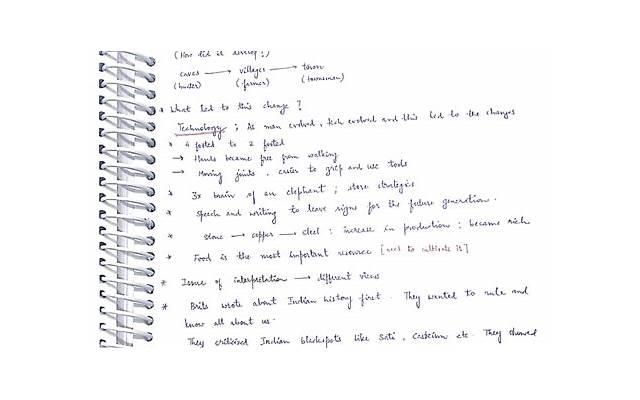 (How did it develop?)
caves → villages → town
(hunter) (farmer) (townsman)
* What led to this change?
Technology; As man evolved, tech evolved and this led to the changes
* 4 footed to 2 footed
→ Hands became free from walking
→ Moving joints, easier to grip and use tools
* 3x brain of an elephant; store strategies
* Speech and writing to leave signs for the future generation.
* stone → copper → steel : increase in production : became rich
* Food is the most important resource [need to cultivate it]
* Issue of interpretation → different views
* Brits wrote about Indian history first. They wanted to rule and
know all about us.
They criticised Indian blackspots like Sati, Casteism etc. They showed